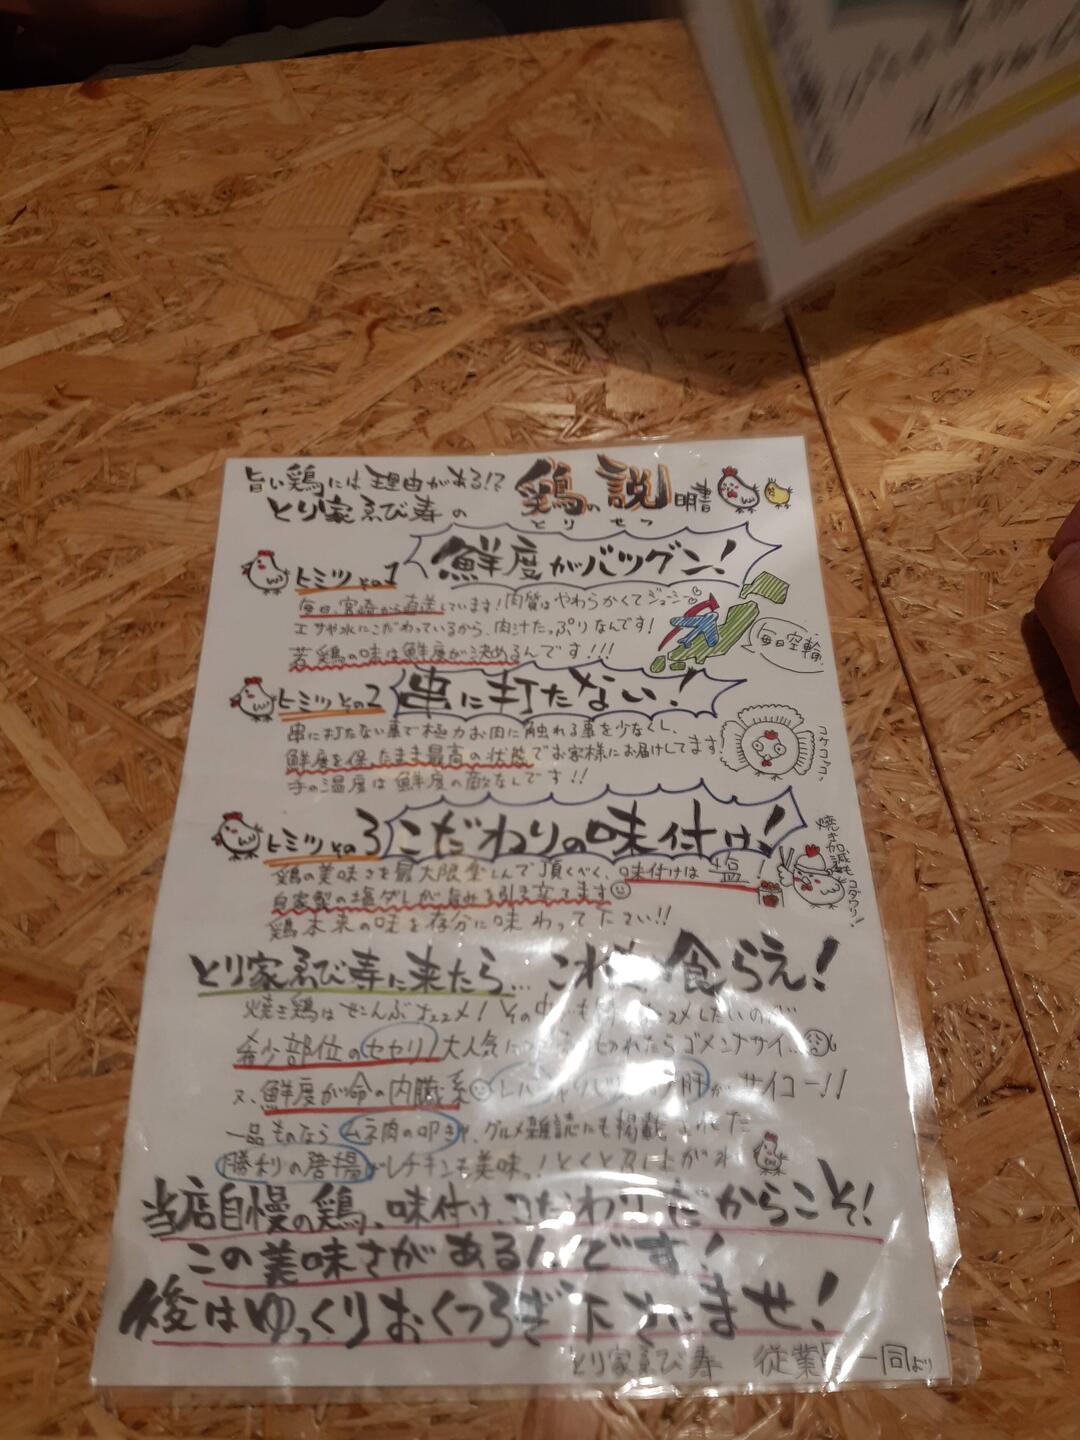 旨い鶏には理由がある!?
とり家ゑび寿の
鶏の説明書
とりせつ
トミツその1
鮮度がバツグン!
毎日、宮崎から直送しています!肉質はやわらかくてジューシー
エサや水にこだわっているから、肉汁たっぷりなんです!
若鶏の味は鮮度が決めるんです!!!
毎日空輸
トミツその2
串に打たない!
串に打たない事で極力お肉に触れる事を少なくし、
鮮度を保ったまま最高の状態でお客様にお届けしてます!
手の温度は鮮度の敵なしです!!
コケコッコ
トミツその3
こだわりの味付け!
鶏の美味さを最大限楽しんで頂くべく、味付けは塩!
自家製の塩ダレが旨みを引き立てます
鶏本来の味を存分に味わって下さい!!
焼き加減もコダワリ!
とり家ゑび寿に来たら...これを食らえ!
焼き鶏はぜんぶオススメ!その中でも
希少部位のセセリ大人気につき売り切れたらゴメンナサイ...
又、鮮度が命の内臓系 レバー 肝がサイコー!!
一品ものなら ムネ肉の叩きや、グルメ雑誌にも掲載された
勝利の唐揚
当店自慢の鶏、味付け、こだわりだからこそ!
この美味さがあるんです!
後はゆっくりおくつろぎ下さいませ!
とり家ゑび寿 従業員一同より